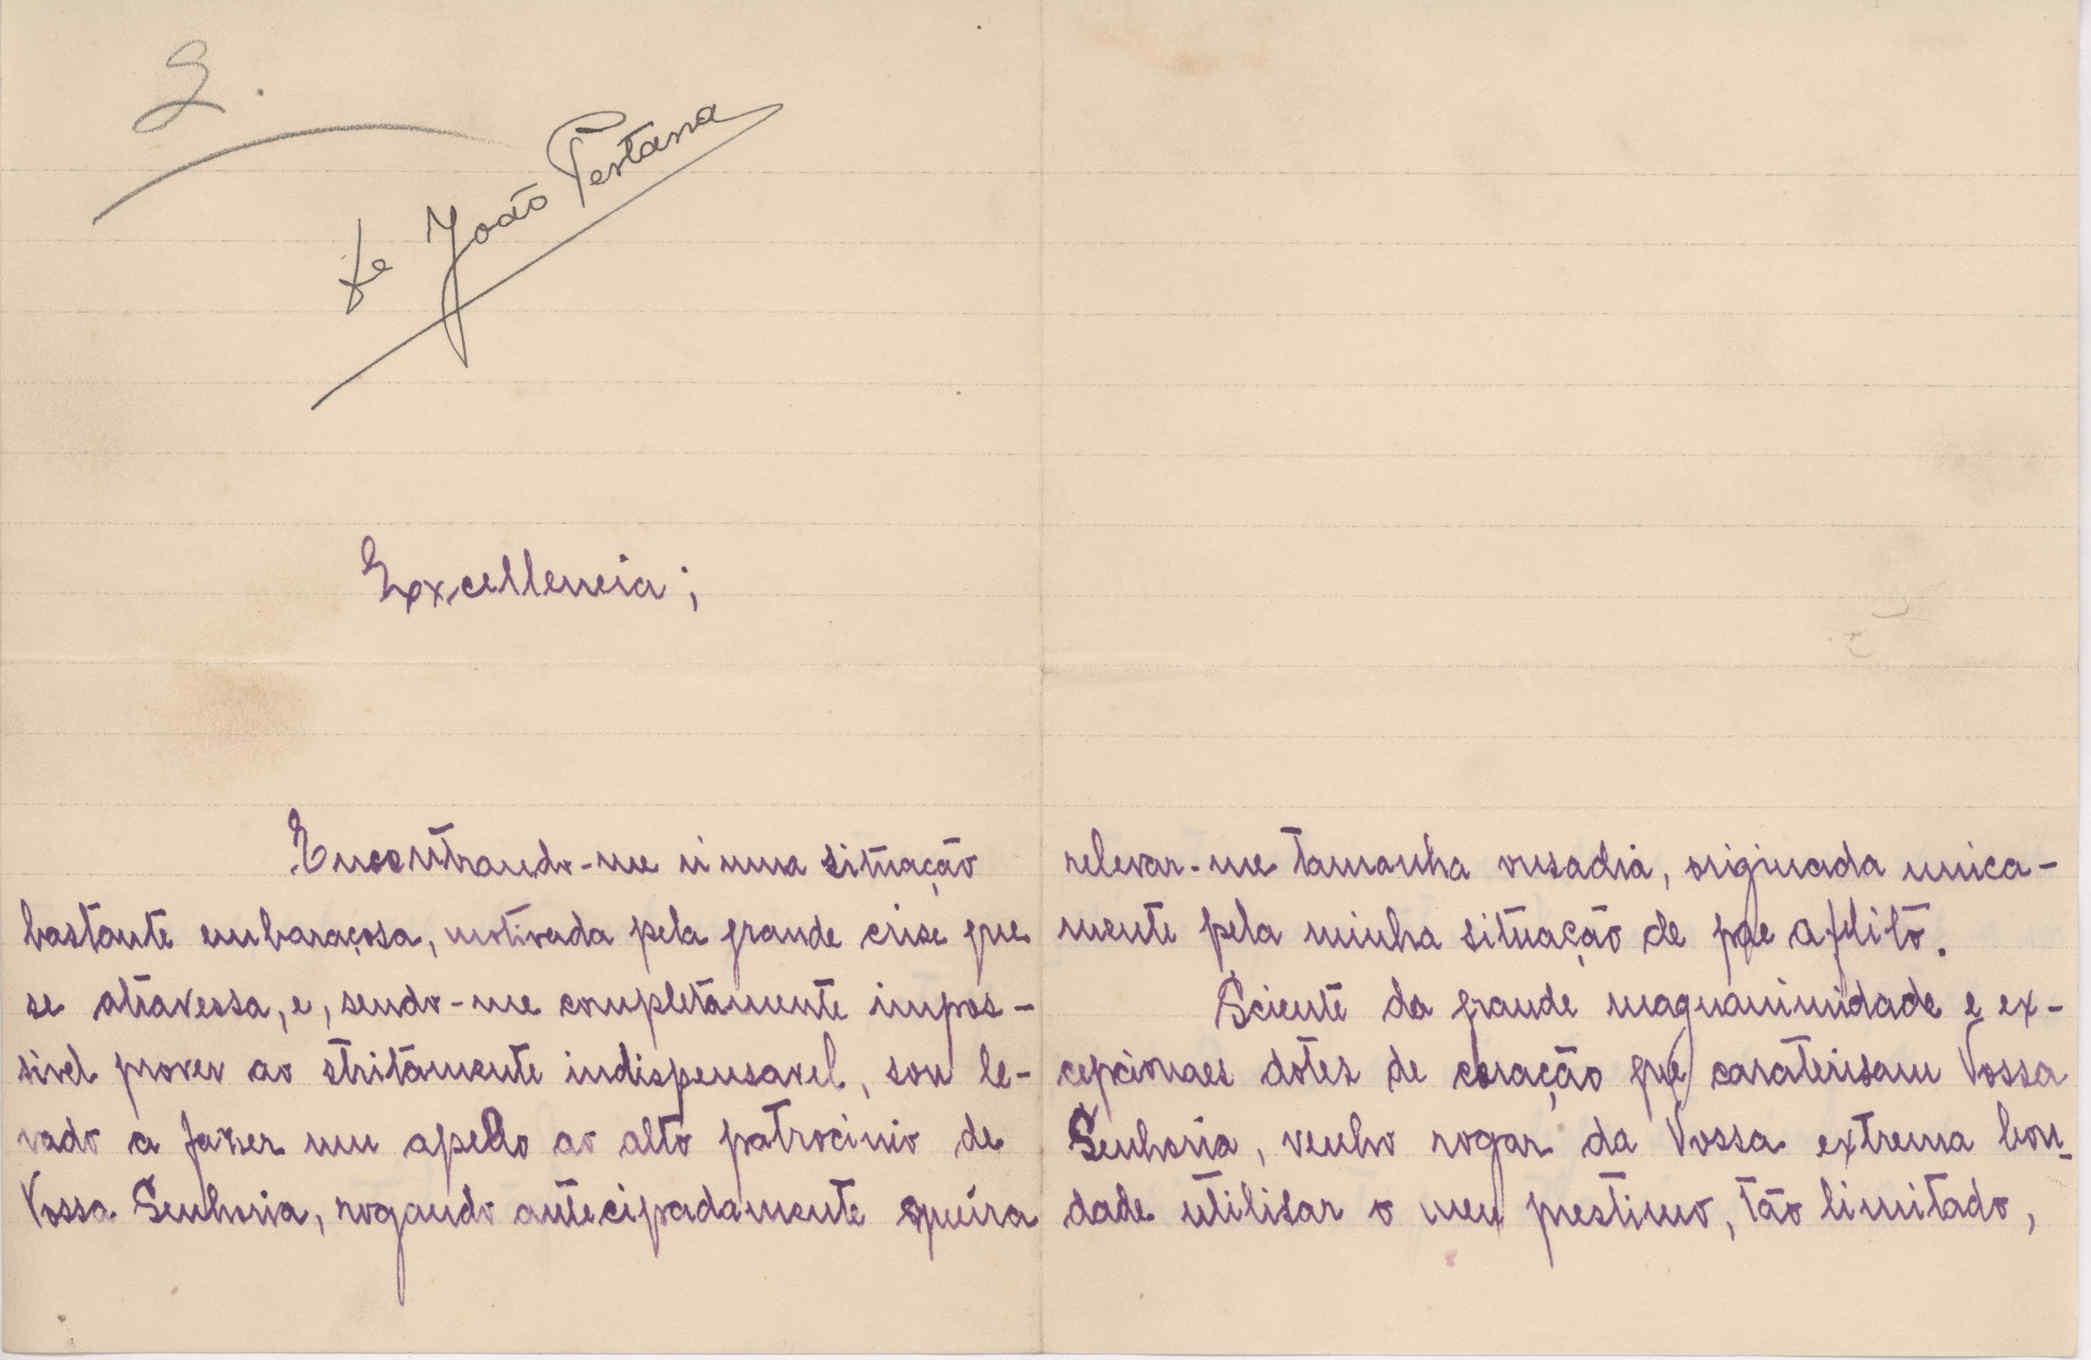 2.
de João Pestana
Excellencia;
Encontrando-me n'uma situação
bastante embaraçosa, motivada pela grande crise que
se atravessa, e, sendo-me completamente impos-
sivel prover ao stritamente indispensavel, sou le-
vado a fazer um apello ao alto patrocinio de
Vossa Senhoria, rogando antecipadamente queira
relevar-me tamanha ousadia, originada unica-
mente pela minha situação de pae aflito.
Sciente da grande magnanimidade e ex-
cepcionaes dotes de coração que caraterisam Vossa
Senhoria, venho rogar da Vossa extrema bon-
dade utilisar o meu prestimo, tão limitado,